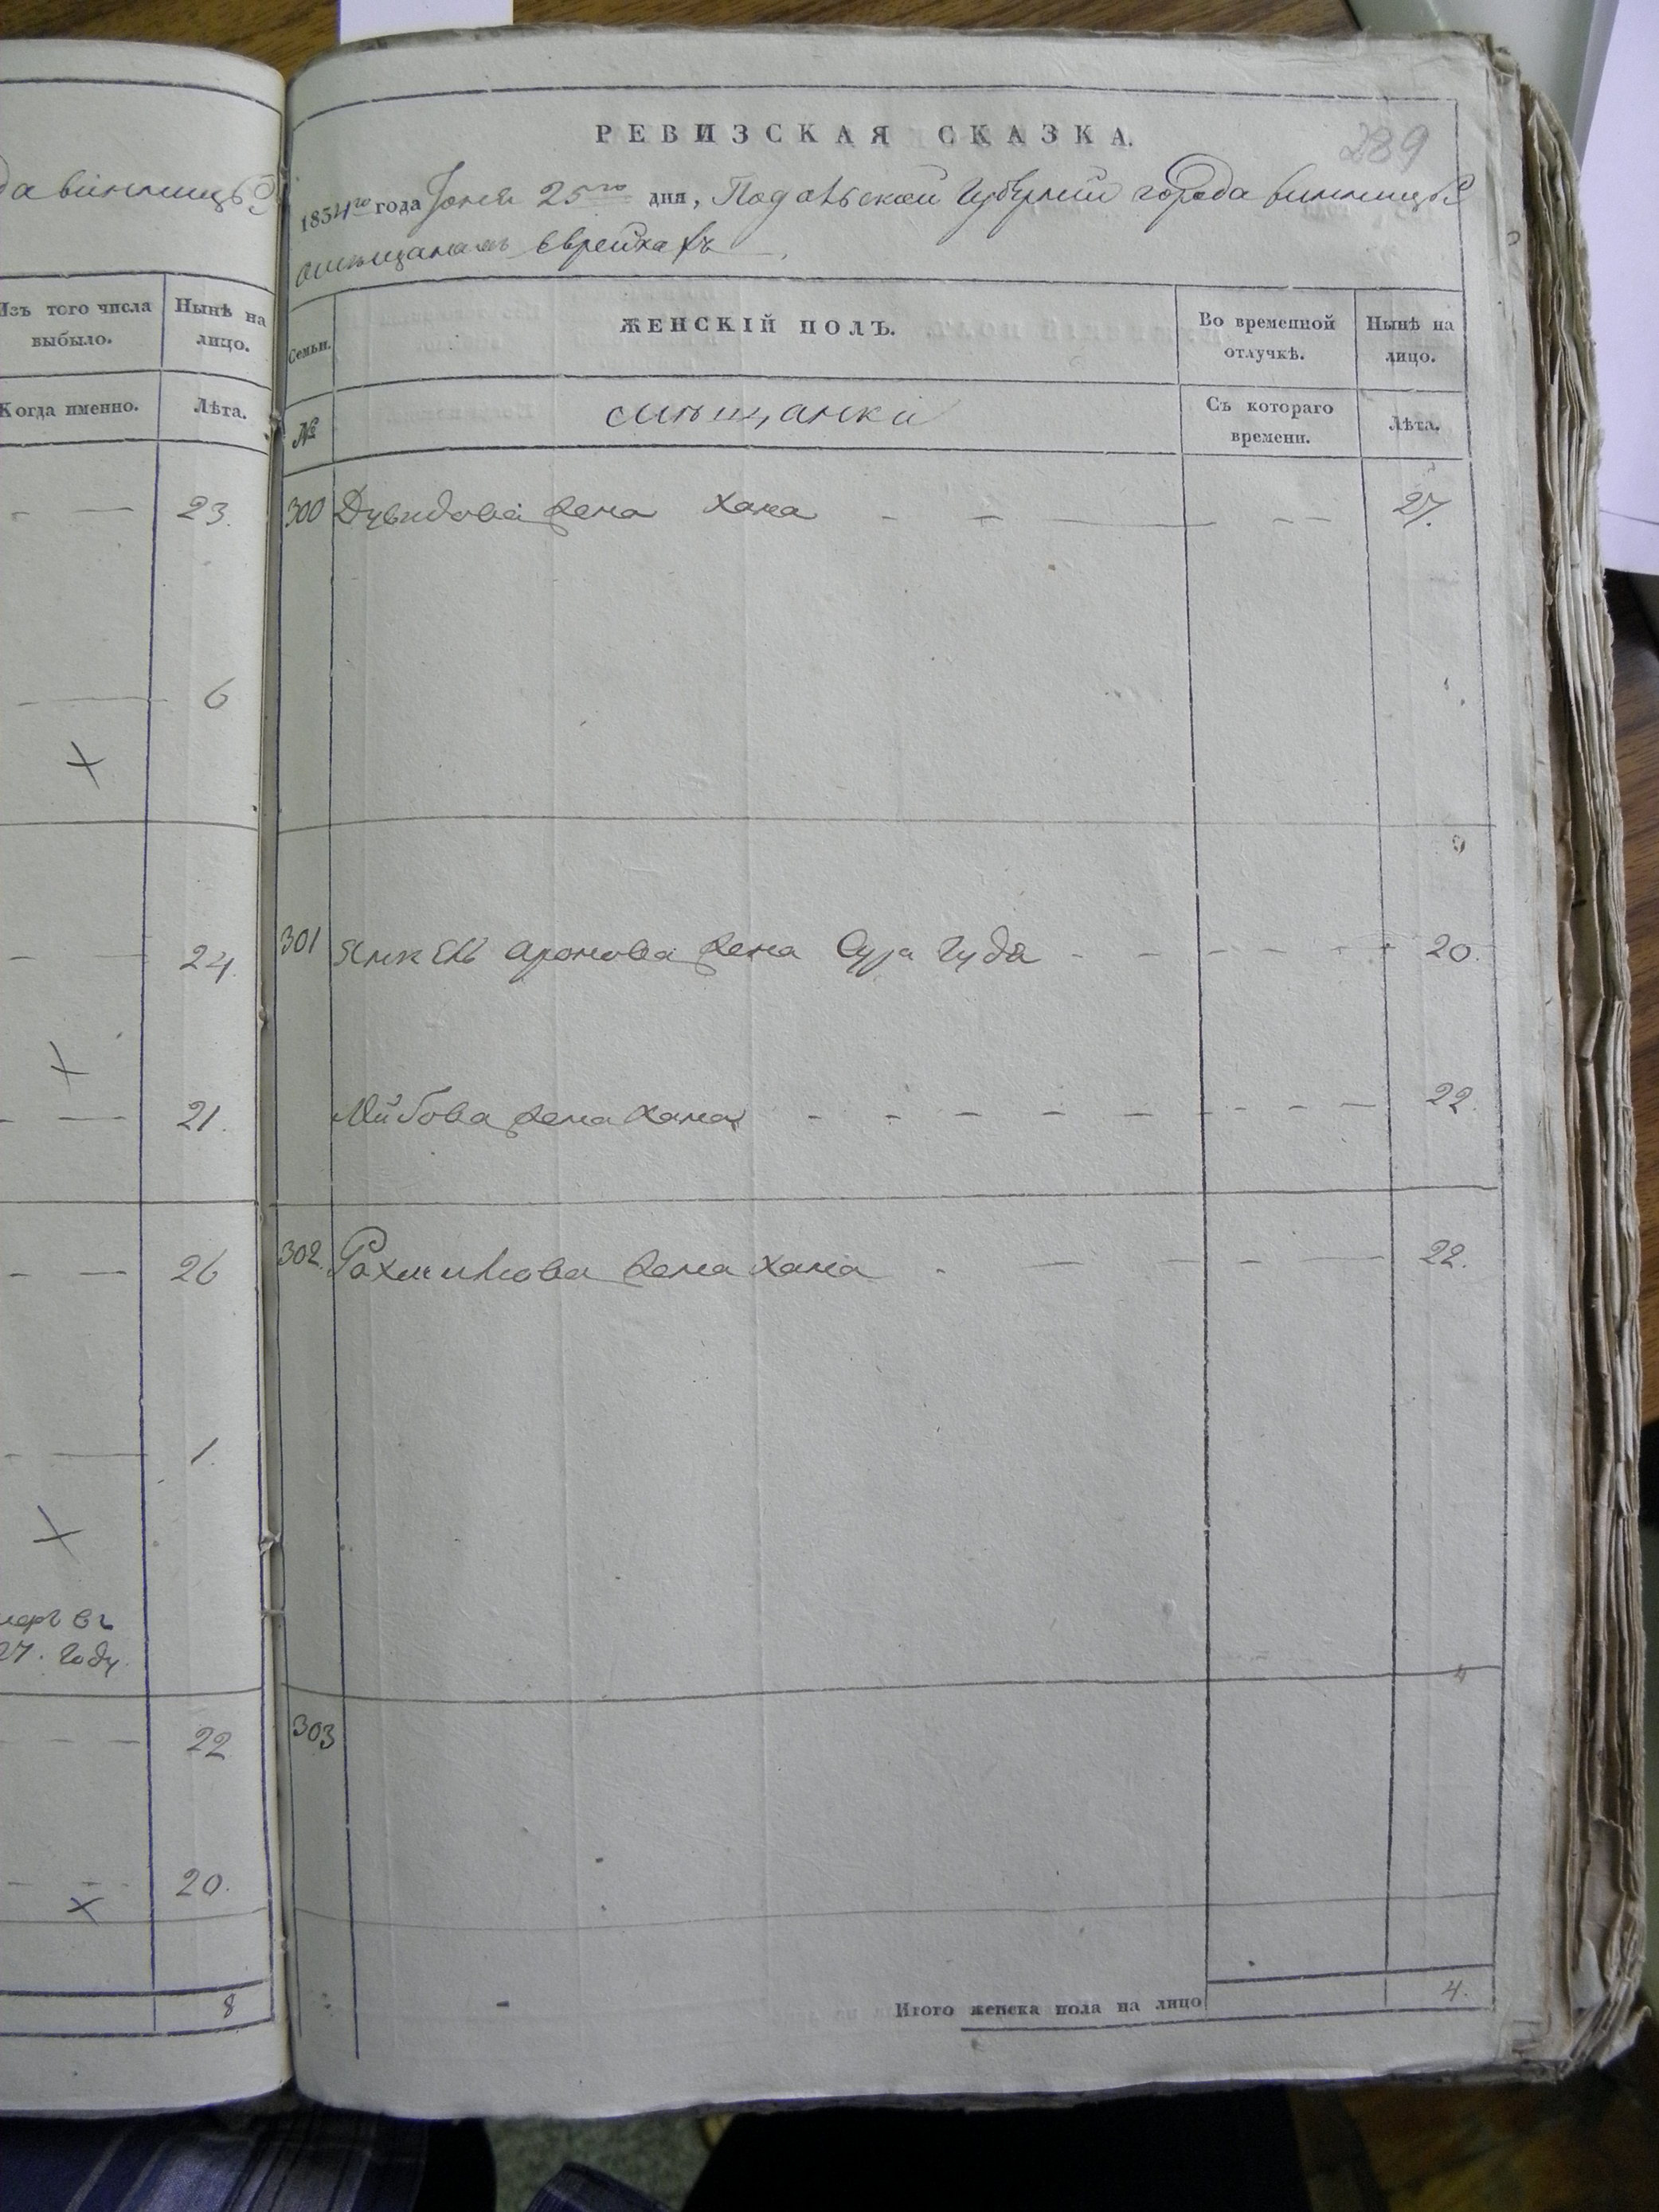 да винницы
Изъ того числа выбыло.
Нынѣ на лицо.
Когда именно.
Лѣта.
23.
6
24.
21.
26
1.
въ
27. году.
22
20.
8
289
РЕВИЗСКАЯ СКАЗКА.
1834го года Іюня 25го дня, Подольской Губерніи города винницы
о мѣщанахъ Евреяхъ
Семьи.
ЖЕНСКІЙ ПОЛЪ.
Во временной отлучкѣ.
Нынѣ на лицо.
№
мѣщанки
Съ котораго времени.
Лѣта.
300 Дувидова жена Хана 27.
301 Янкель Аронова жена Сура Гуда 20.
Лейбова жена Хана 22.
302. жена Хана 22.
303
Итого женска пола на лицо 4.